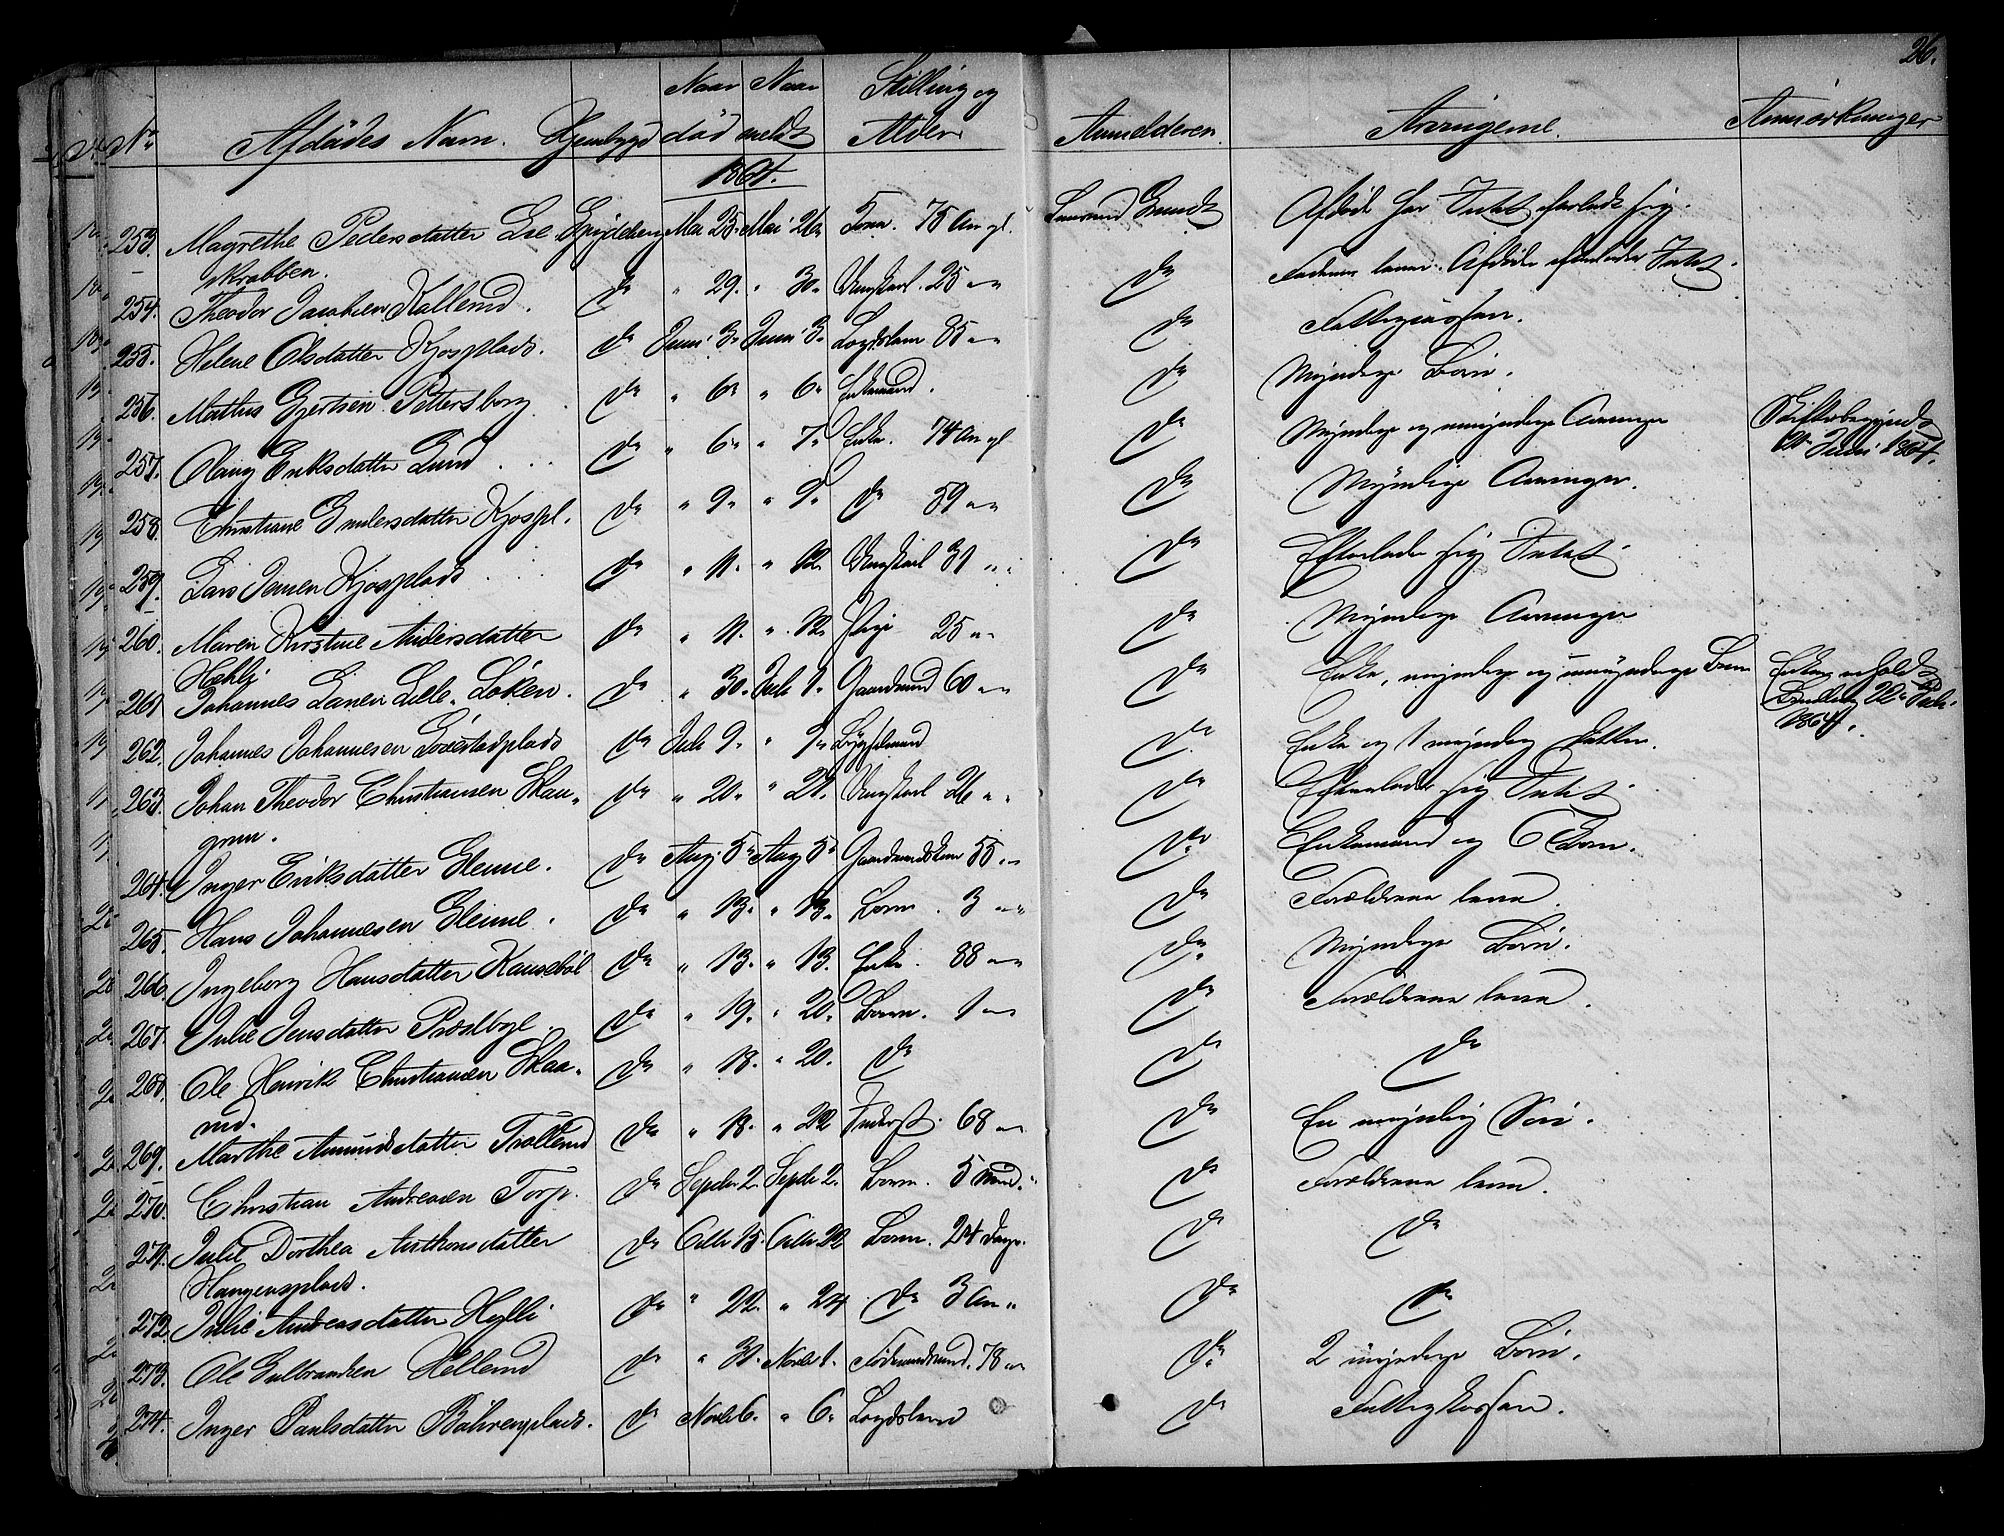 26.
No Afdødes Navn. Hjembygd Naar død Naar meldt Stilling og Alder Anmelderen Arvingerne. Anmærkninger
1864.
253. Magrethe Pedersdatter Lie Spydeberg Mai 25. Mai 26. 75 Aar gl. Lensmand Grundt Afdøde har Intet efterladt sig.
Skrabben.
254. Theodor Jacobsen Kallerud. do " 29. " 30. Ungkarl 25 " do Faderen lever. Afdøde efterlader Intet.
255. Helene Olsdatter Kjosplads. do Juni 3. Juni 3. Lægdslem 85 " do Fattigcassen.
256. Mathis Gjertsen Petersborg do " 6. " 6. Enkemand. do Myndige Børn.
257. Eriksdatter Lund do " 6. " 7. Enke. 74 Aar gl do Myndige og umyndige Arvinger Skiftebegynd.
21 Juni 1864.
258. Christiane Gundersdatter Kjospl. do " 9. " 9. do 59 " do Myndige Arvinger.
259. Lars Jensen Kjosplads do " 11. " 12. Ungkarl 31 " do Efterlader sig Intet.
260. Maren Kirstine Andersdatter do " 11. " 12. Pige 25 " do Myndige Arvinger
Hehli
261 Johannes Larsen Lille-Løken. do " 30. Juli 1. Gaardmand 60 " do Enke, myndige og umyndige Børn
1864.
262. Johannes Johannesen do Juli 9. " 9. do Enke og 1 myndig Datter.
263. Johan Theodor Christiansen Skau- do " 20. " 21. Ungkarl 26 " do Efterlader sig Intet.
gren.
264. Inger Eriksdatter Glenne. do Aug. 5. Aug 5. Gaardmandskone 55 " do Enkemand og 6 Børn.
265. Hans Johannesen Glenne. do " 13. " 13. Barn. 3 " do Forældrene leve.
266. Ingeborg Hansdatter do " 13. " 13. Enke. 88 " do Myndige Børn.
267. Julie Jensdatter do " 19. " 20. Barn. 1 " do Forældrene leve.
268. Ole Henrik Christiansen Skaa- do " 18. " 20. do do do
rud.
269. Marthe Amundsdatter Trollerud do " 18. " 22 Inderst. 68 " do En myndig Søn.
270. Christian Andreasen Torp. do Septbr 2. Septbr 2. Barn. 5 Mnd. " do Forældrene leve.
271. Julie Dorthea Anthonsdatter do Octbr 15. Octbr 22 Barn. 24 Dage. do do
Haugensplads.
272. Julie Andreasdatter Hylli do " 22. " 24 do 3 Aar " do do
273. Ole Gulbrandsen Hellerud do " 31. Novbr 1. Føderaadsmand. 78 " do 2 myndige Børn.
274. Inger Paulsdatter do Novbr 6. " 6. Lægdslem do Fattigkassen.